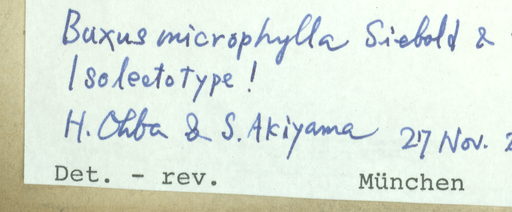 Buxus microphylla Siebold &
Isolectotype!
H. Ohba & S. Akiyama 27 Nov. 2
Det. - rev. München